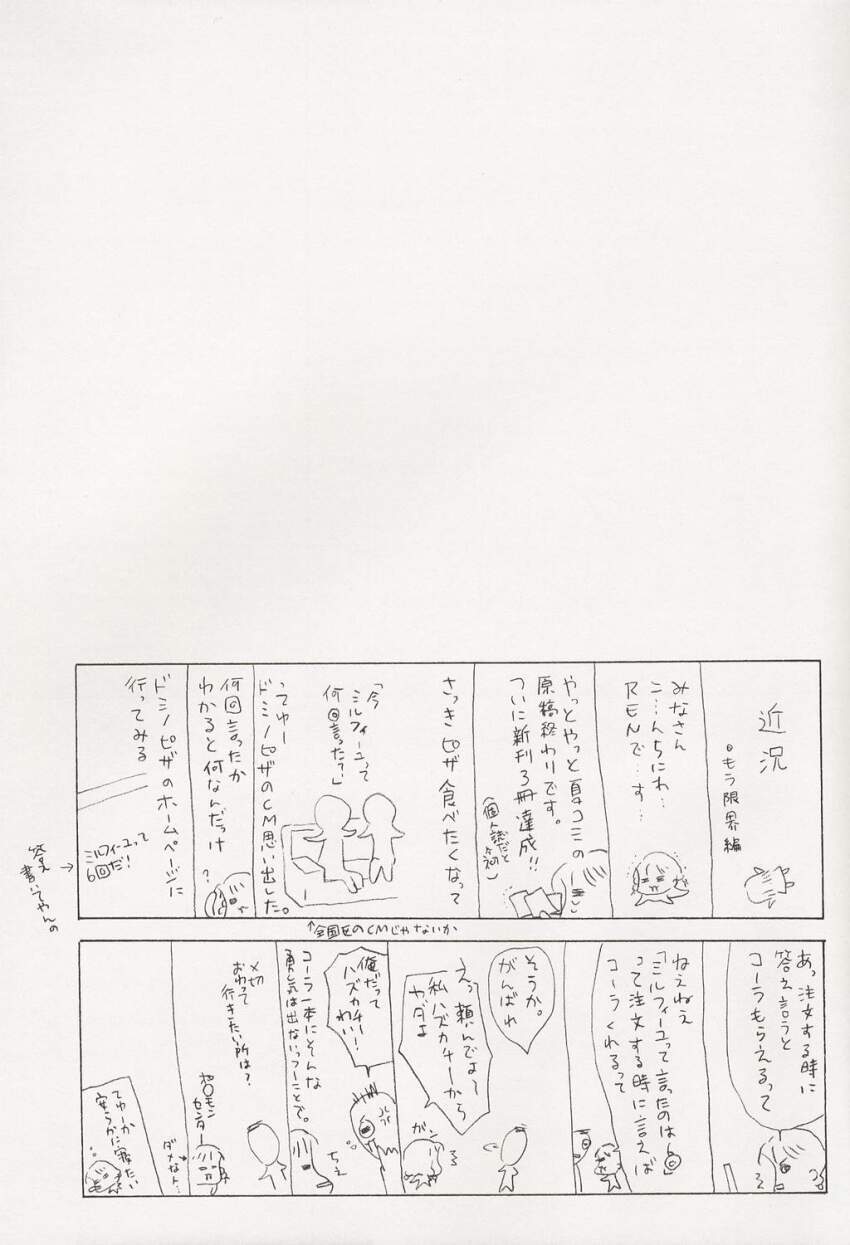 近況
•もう限界編
みなさん
こ…んちにわ…
RENで…す…
やっとやっと夏コミの
原稿終わりです。
ついに新刊3冊達成!!
(個人誌だと
さっきピザ食べたくなって
「今
ミルフィーユって
何回言った?」
ってゆー
ドミノピザのCM思い出した。
↑全国区のCMじゃないか
何回言ったか
わかると何なんだっけ
?
ドミノピザのホームページに
行ってみる
ミルフィーユって
6回だ!
答え→
書いてやんの
あっ注文する時に
答え言うと
コーラもらえるって
ねえねえ
「ミルフィーユって言ったのは6回」
って注文する時に言えば
コーラくれるって
そうか。
がんばれ
えっ頼んでよ〜
私ハズカチーから
ヤダよ
ガン
俺だって
ハズカチー!
わい!
コーラ一本にそんな
勇気は出ないっつーことで。
ちぇ
〆切
おわって
行きたい所は?
センター
ダメなト…
てゆーか
安らかに寝たい